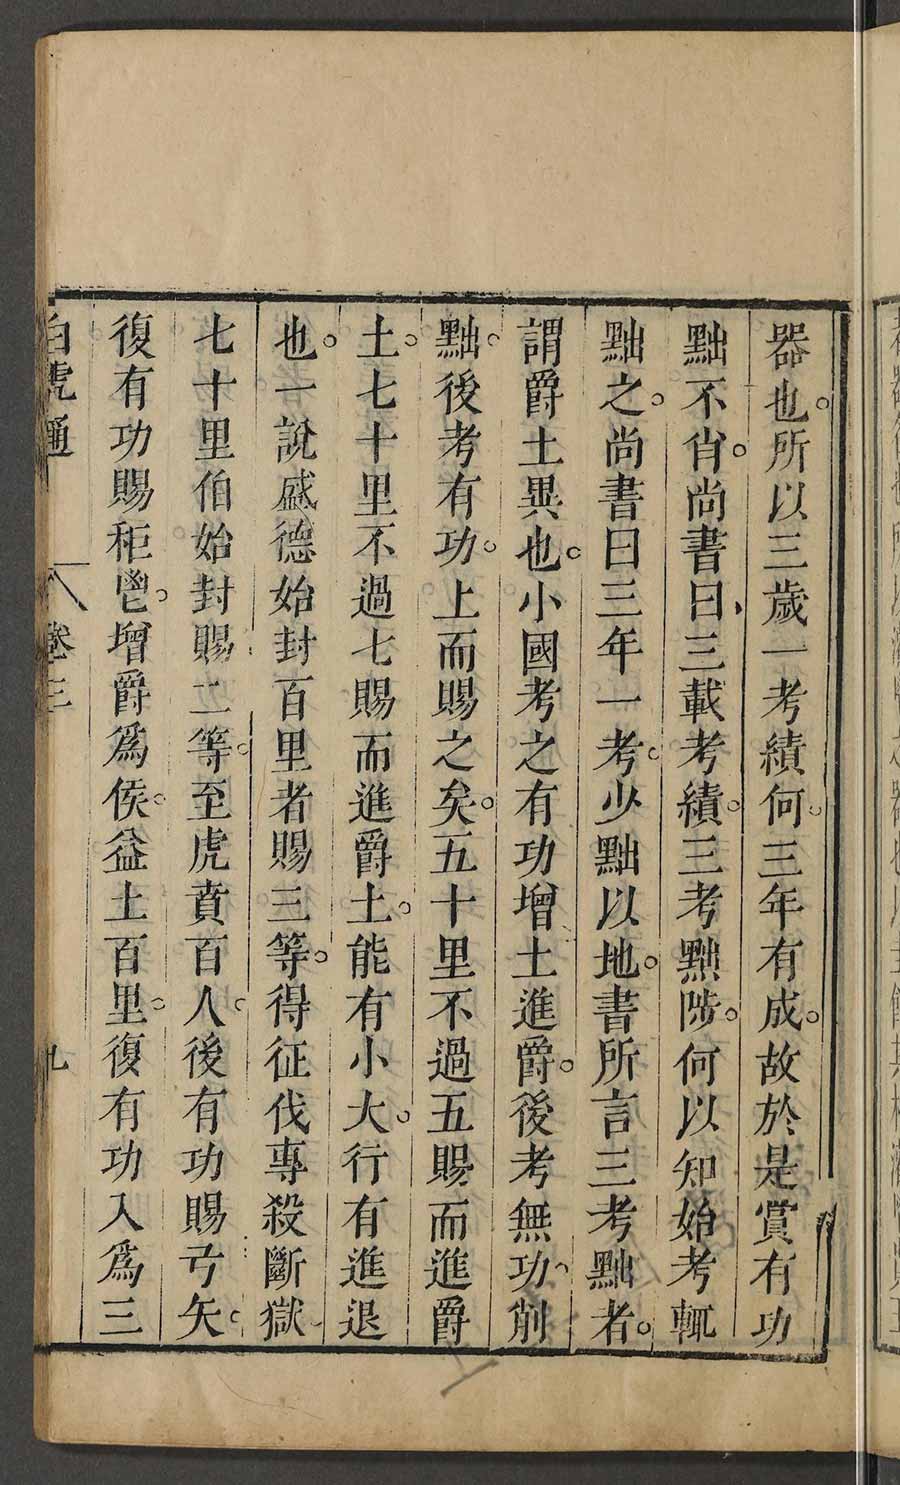 器也所以三歲一考績何三年有成故於是賞有功
黜不肖尚書曰三載考績三考黜陟何以知始考輒
黜之尚書曰三年一考少黜以地書所言三考黜者
謂爵土異也小國考之有功增土進爵後考無功削
黜後考有功上而賜之矣五十里不過五賜而進爵
土七十里不過七賜而進爵土能有小大行有進退
也一說盛德始封百里者賜三等得征伐專殺斷獄
七十里伯始封賜二等至虎賁百人後有功賜弓矢
復有功賜秬鬯增爵為侯益土百里復有功入為三
白虎通 卷三 九